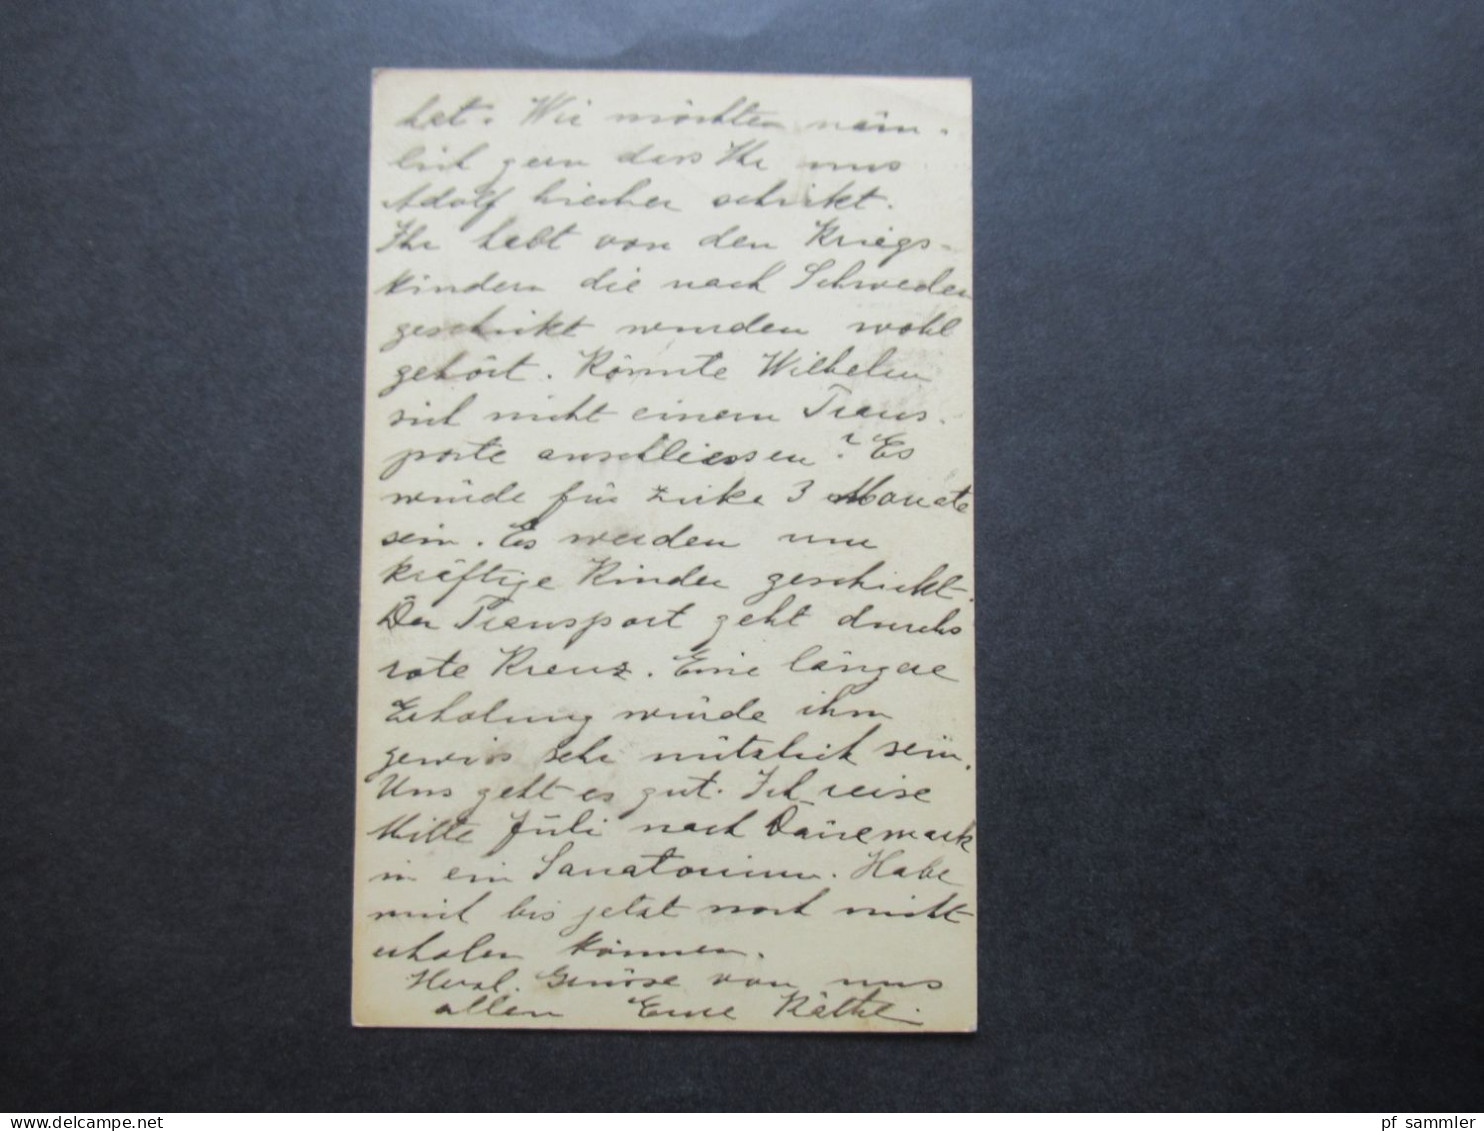 hat. Wir möchten näm-
lich gern dass Ihr uns
Adolf hierher schickt.
Ihr habt von den Kriegs-
kindern die nach Schweden
geschickt wurden wohl
gehört. Könnte Wilhelm
sich nicht einem Trans-
porte anschliessen? Es
würde für zirka 3 Monate
sein. Es werden nur
kräftige Kinder geschickt.
Der Transport geht durchs
rote Kreuz. Eine längere
Erholung würde ihm
gewiss sehr nützlich sein.
Uns geht es gut. Ich reise
Mitte Juli nach Dänemark
in ein Sanatorium. Habe
mich bis jetzt noch nicht
erholen können.
Herzl. Grüsse von uns
allen Eure Käthe.
delcampe.net
pf_sammler